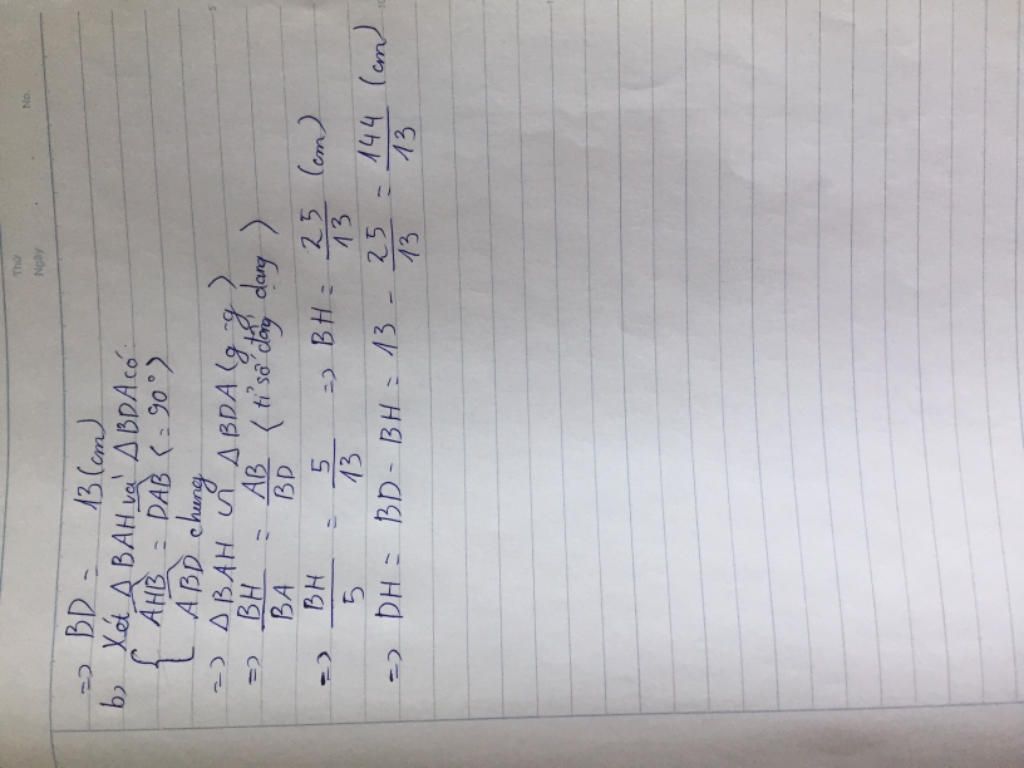 Thứ
Ngày
No.
=> BD = 13 (cm)
b) Xét Δ BAH và Δ BDA có:
{ AHB = DAB (= 90°)
ABD chung
=> Δ BAH ∽ Δ BDA (g-g)
=> BH/BA = AB/BD (tỉ số đồng dạng)
=> BH/5 = 5/13 => BH = 25/13 (cm)
=> DH = BD - BH = 13 - 25/13 = 144/13 (cm)